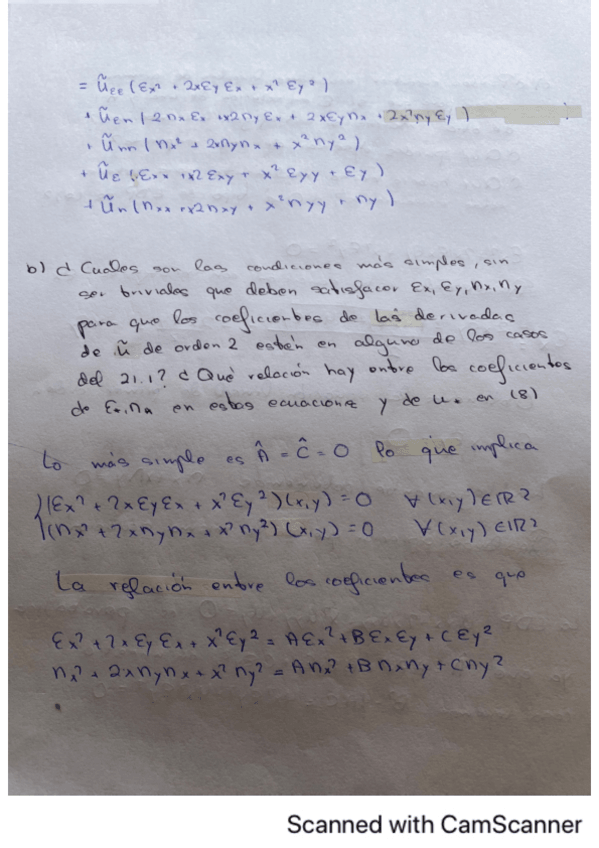 = ũ_εε (εx² + 2xεyεx + x² εy²)
+ ũ_εn (2nxεx +x2nyεx + 2xεynx + 2x²nyεy)
+ ũ_nn (nx² + 2xnynx + x² ny²)
+ ũ_ε (εxx +x2εxy + x² εyy + εy)
+ ũ_n (nxx +x2nxy + x²nyy + ny)
b) ¿ Cuales son las condiciones más simples, sin
ser triviales que deben satisfacer εx, εy, nx, ny
para que los coeficientes de las derivadas
de ũ de orden 2 estén en alguno de los casos
del 21.1? ¿ Qué relación hay entre los coeficientes
de en estas ecuaciones y de en (8)
Lo más simple es Â = Ĉ = 0 lo que implica
(εx² + 2xεyεx + x²εy²)(x,y) = 0 ∀(x,y) ∈ IR²
(nx² + 2xnynx + x²ny²)(x,y) = 0 ∀(x,y) ∈ IR²
La relación entre los coeficientes es que
εx² + 2xεyεx + x²εy² = Aεx² + Bεxεy + Cεy²
nx² + 2xnynx + x²ny² = Anx² + Bnxny + Cny²
Scanned with CamScanner